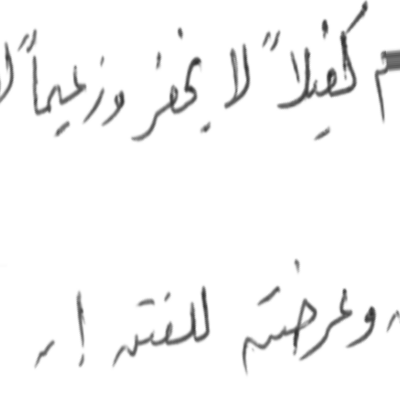 كفيلاً لا يخفر وزعيماً لا
وعرضته للفتن !